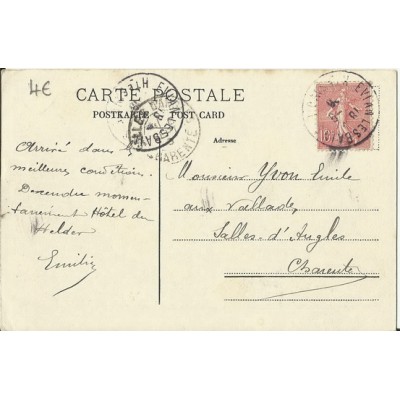 4€
CARTE POSTALE
POSTKARTE POST CARD
Adresse
Arrivé dans
meilleures condition.
Descendu momen-
tanément Hôtel du
Helder
Emilie
Monsieur Yvon Emile
aux Vallades,
Salles-d'Angles
Charente
EVIAN-LES-BAINS
CHARENTE